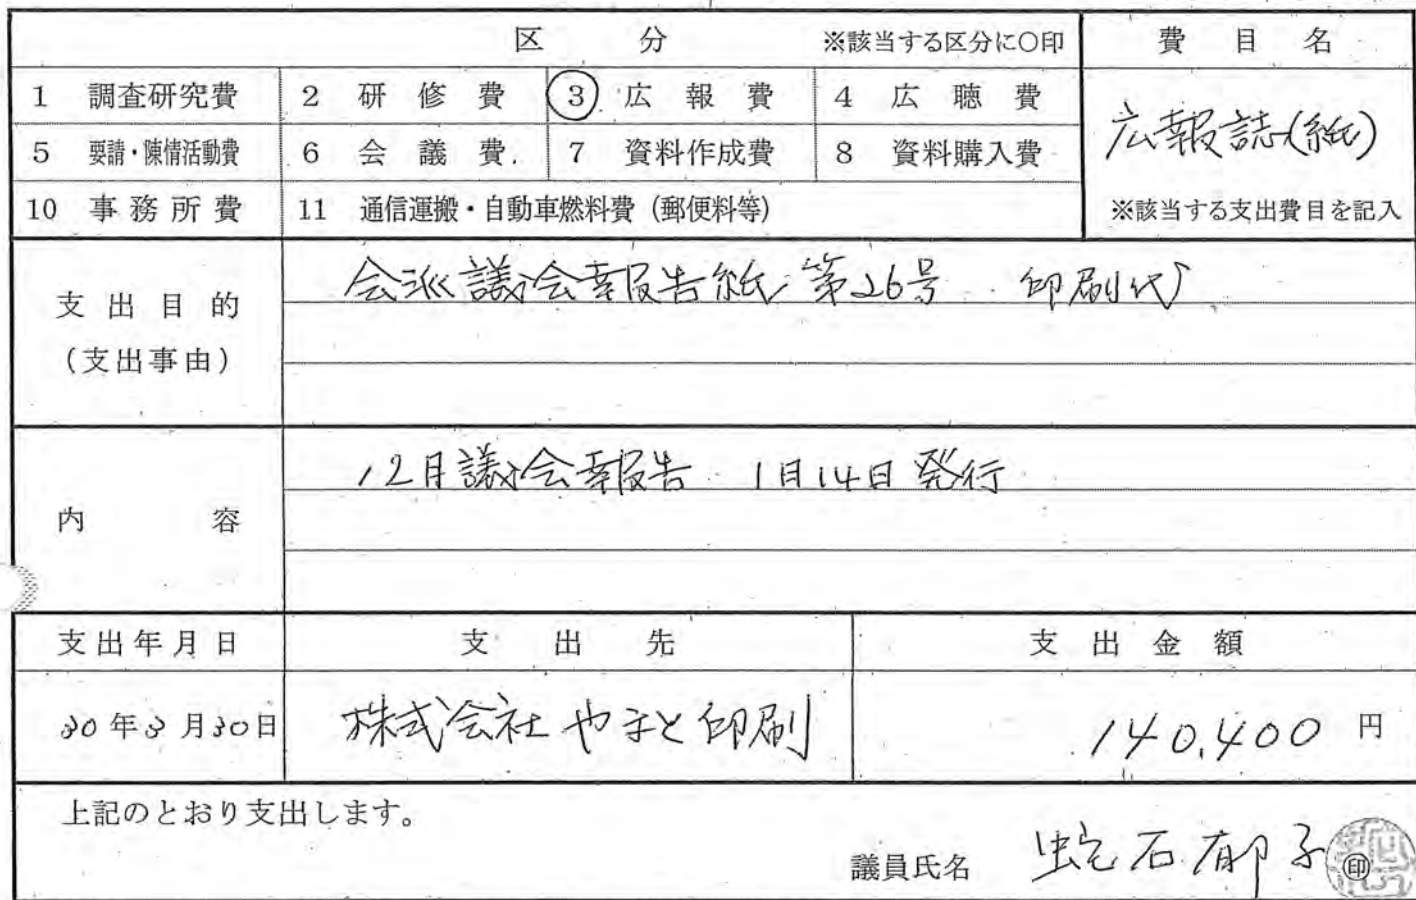 区 分 ※該当する区分に○印 費 目 名
1 調査研究費 2 研 修 費 ③ 広 報 費 4 広 聴 費
広報誌(紙)
5 要請・陳情活動費 6 会 議 費 7 資料作成費 8 資料購入費
10 事務所費 11 通信運搬・自動車燃料費(郵便料等) ※該当する支出費目を記入
支出目的
(支出事由)
会派議会報告紙 第26号 印刷代
内 容
12月議会報告 1日14日発行
支出年月日 支 出 先 支 出 金 額
30年3月30日 株式会社 やまと印刷 140,400 円
上記のとおり支出します。
議員氏名 蛇石郁子 ㊞